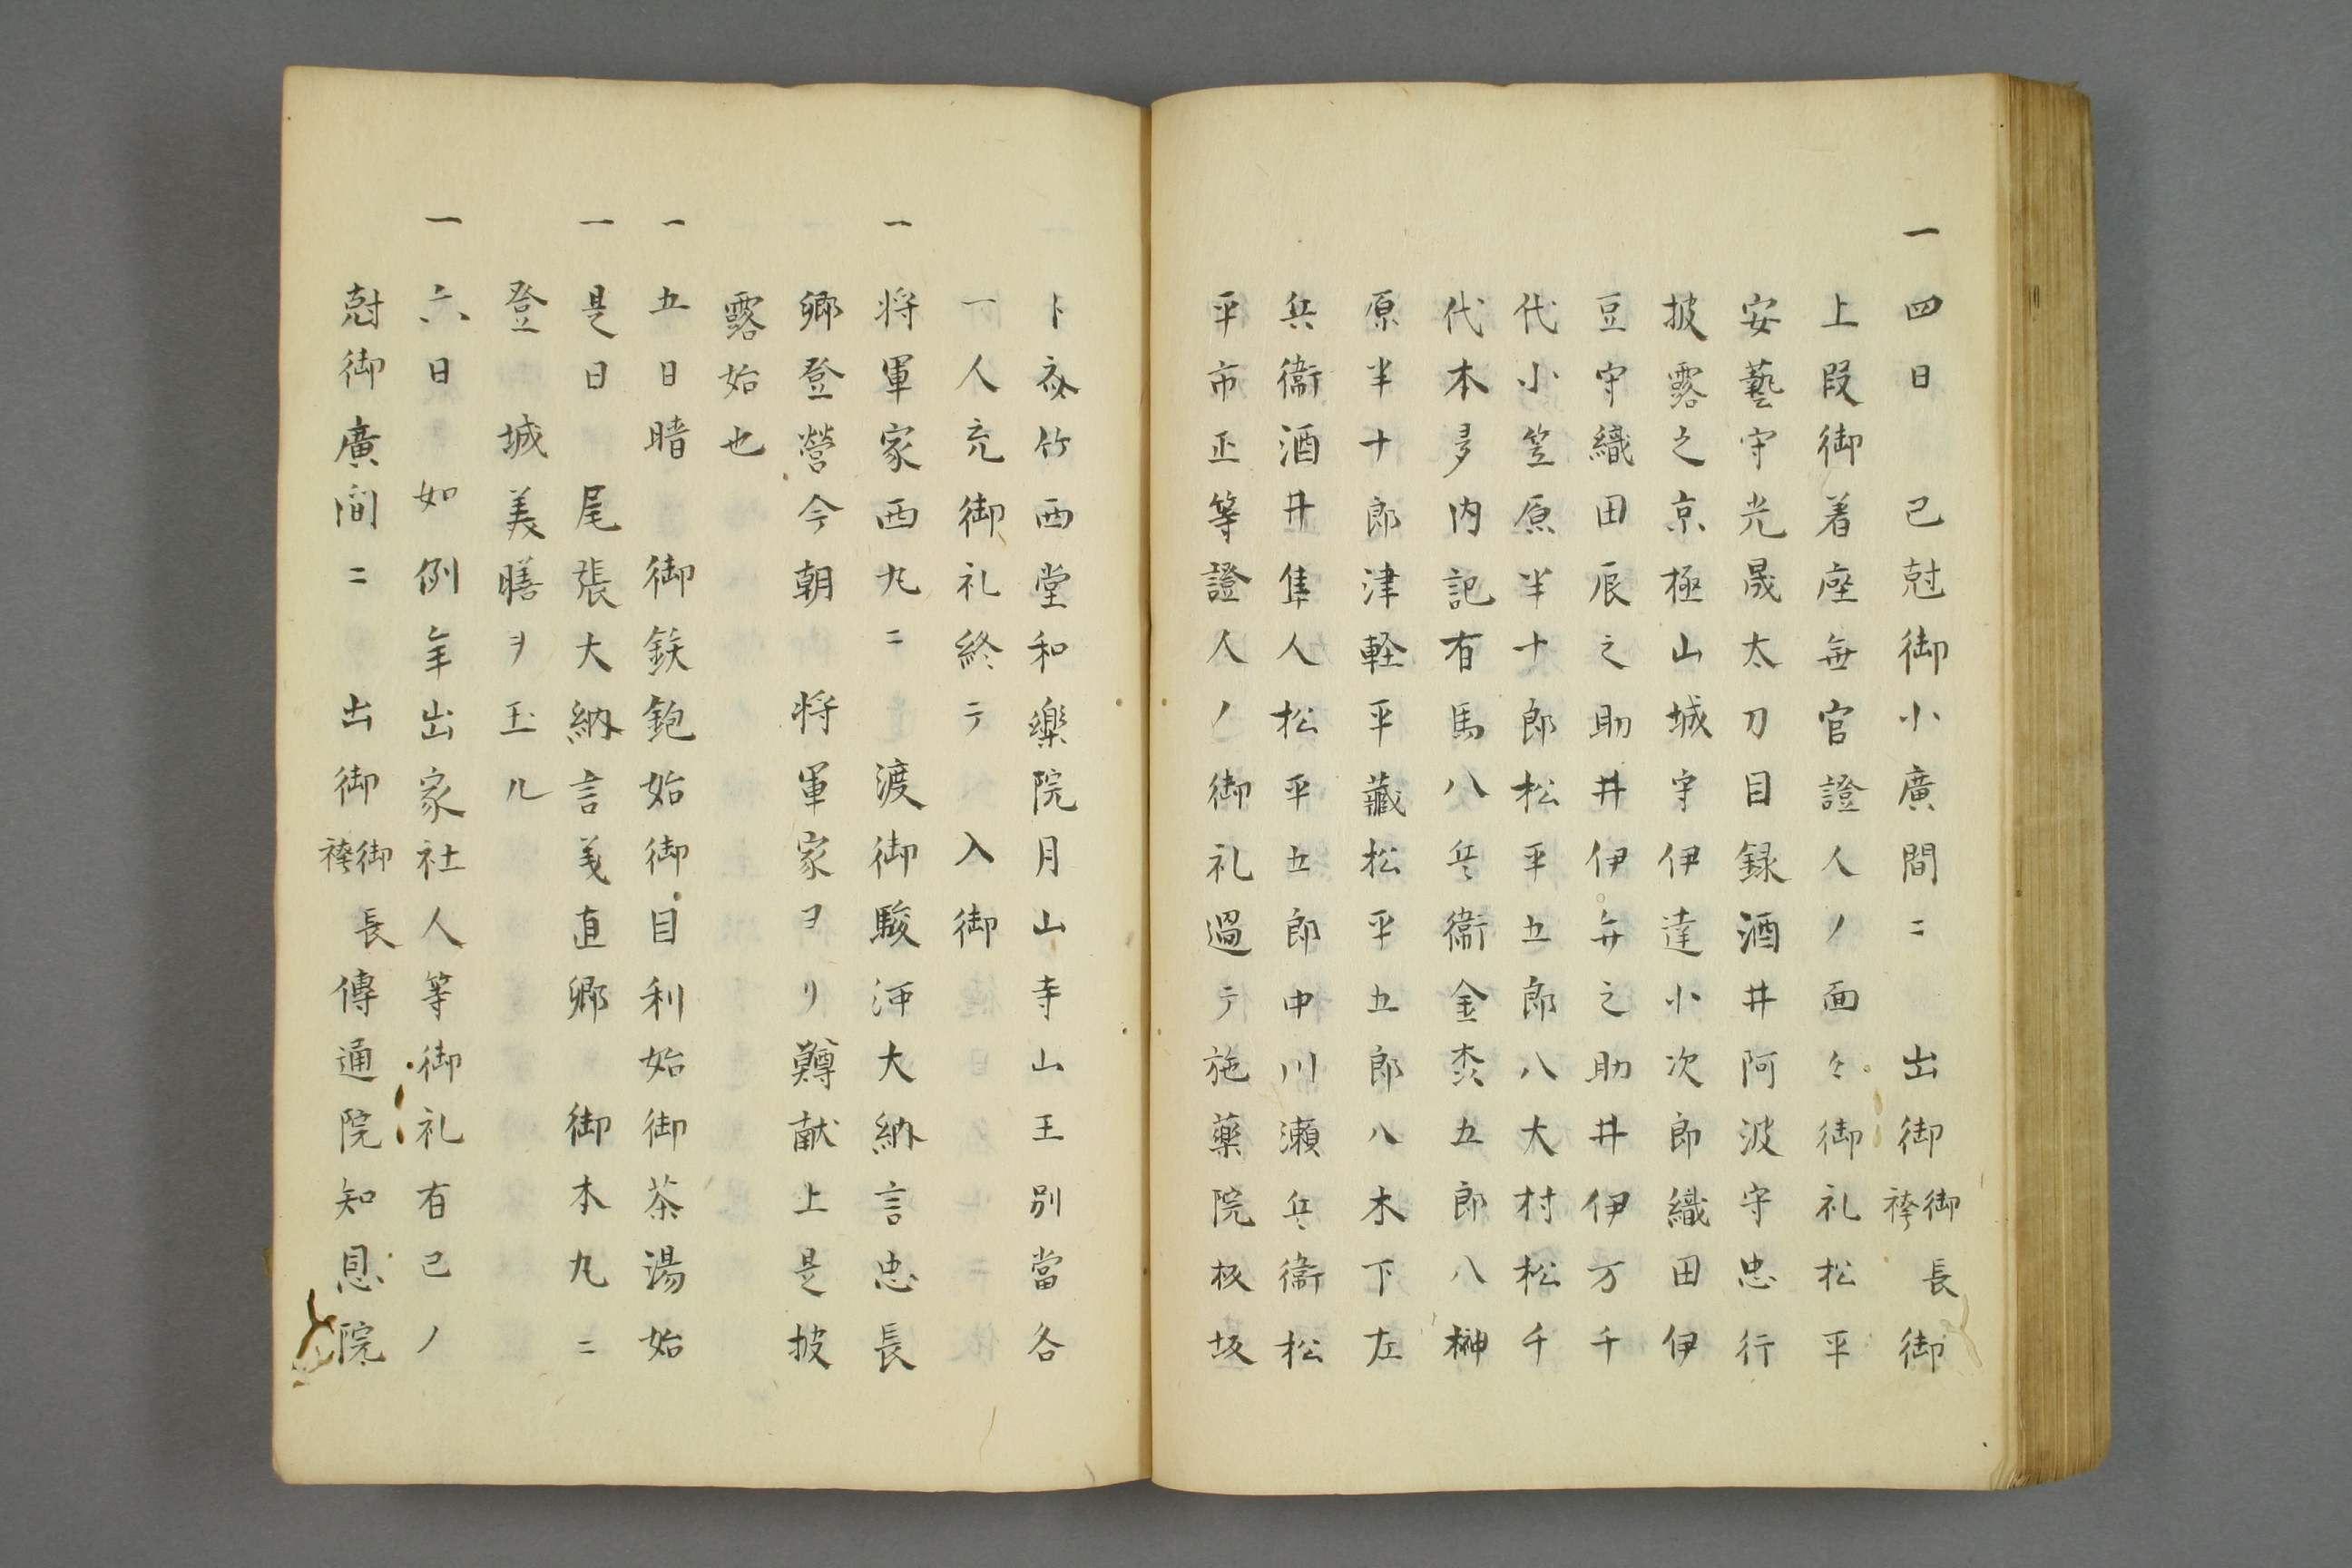 一四日　已尅御小廣間ニ　出御御長袴御
上段御着座無官證人ノ面々御礼松平
安藝守光晟太刀目録酒井阿波守忠行
披露之京極山城守伊達小次郎織田伊
豆守織田辰之助井伊弁之助井伊万千
代小笠原半十郎松平五郎八大村松千
代本多内記有馬八兵衞金森五郎八榊
原半十郎津軽平藏松平五郎八木下左
兵衞酒井隼人松平五郎中川瀬兵衞松
平市正等證人ノ御礼過テ施藥院板坂
卜斎竹西堂和樂院月山寺山王別當各
一人充御礼終テ　入御
一将軍家西丸ニ　渡御駿河大納言忠長
卿登營今朝　将軍家ヨリ鱒献上是披
露始也
一五日晴　御鉄鉋始御目利始御茶湯始
一是日　尾張大納言義直卿　御本丸ニ
登　城美膳ヲ玉ル
一六日　如例年出家社人等御礼有已ノ
尅御廣間ニ　出御御長袴傳通院知恩院